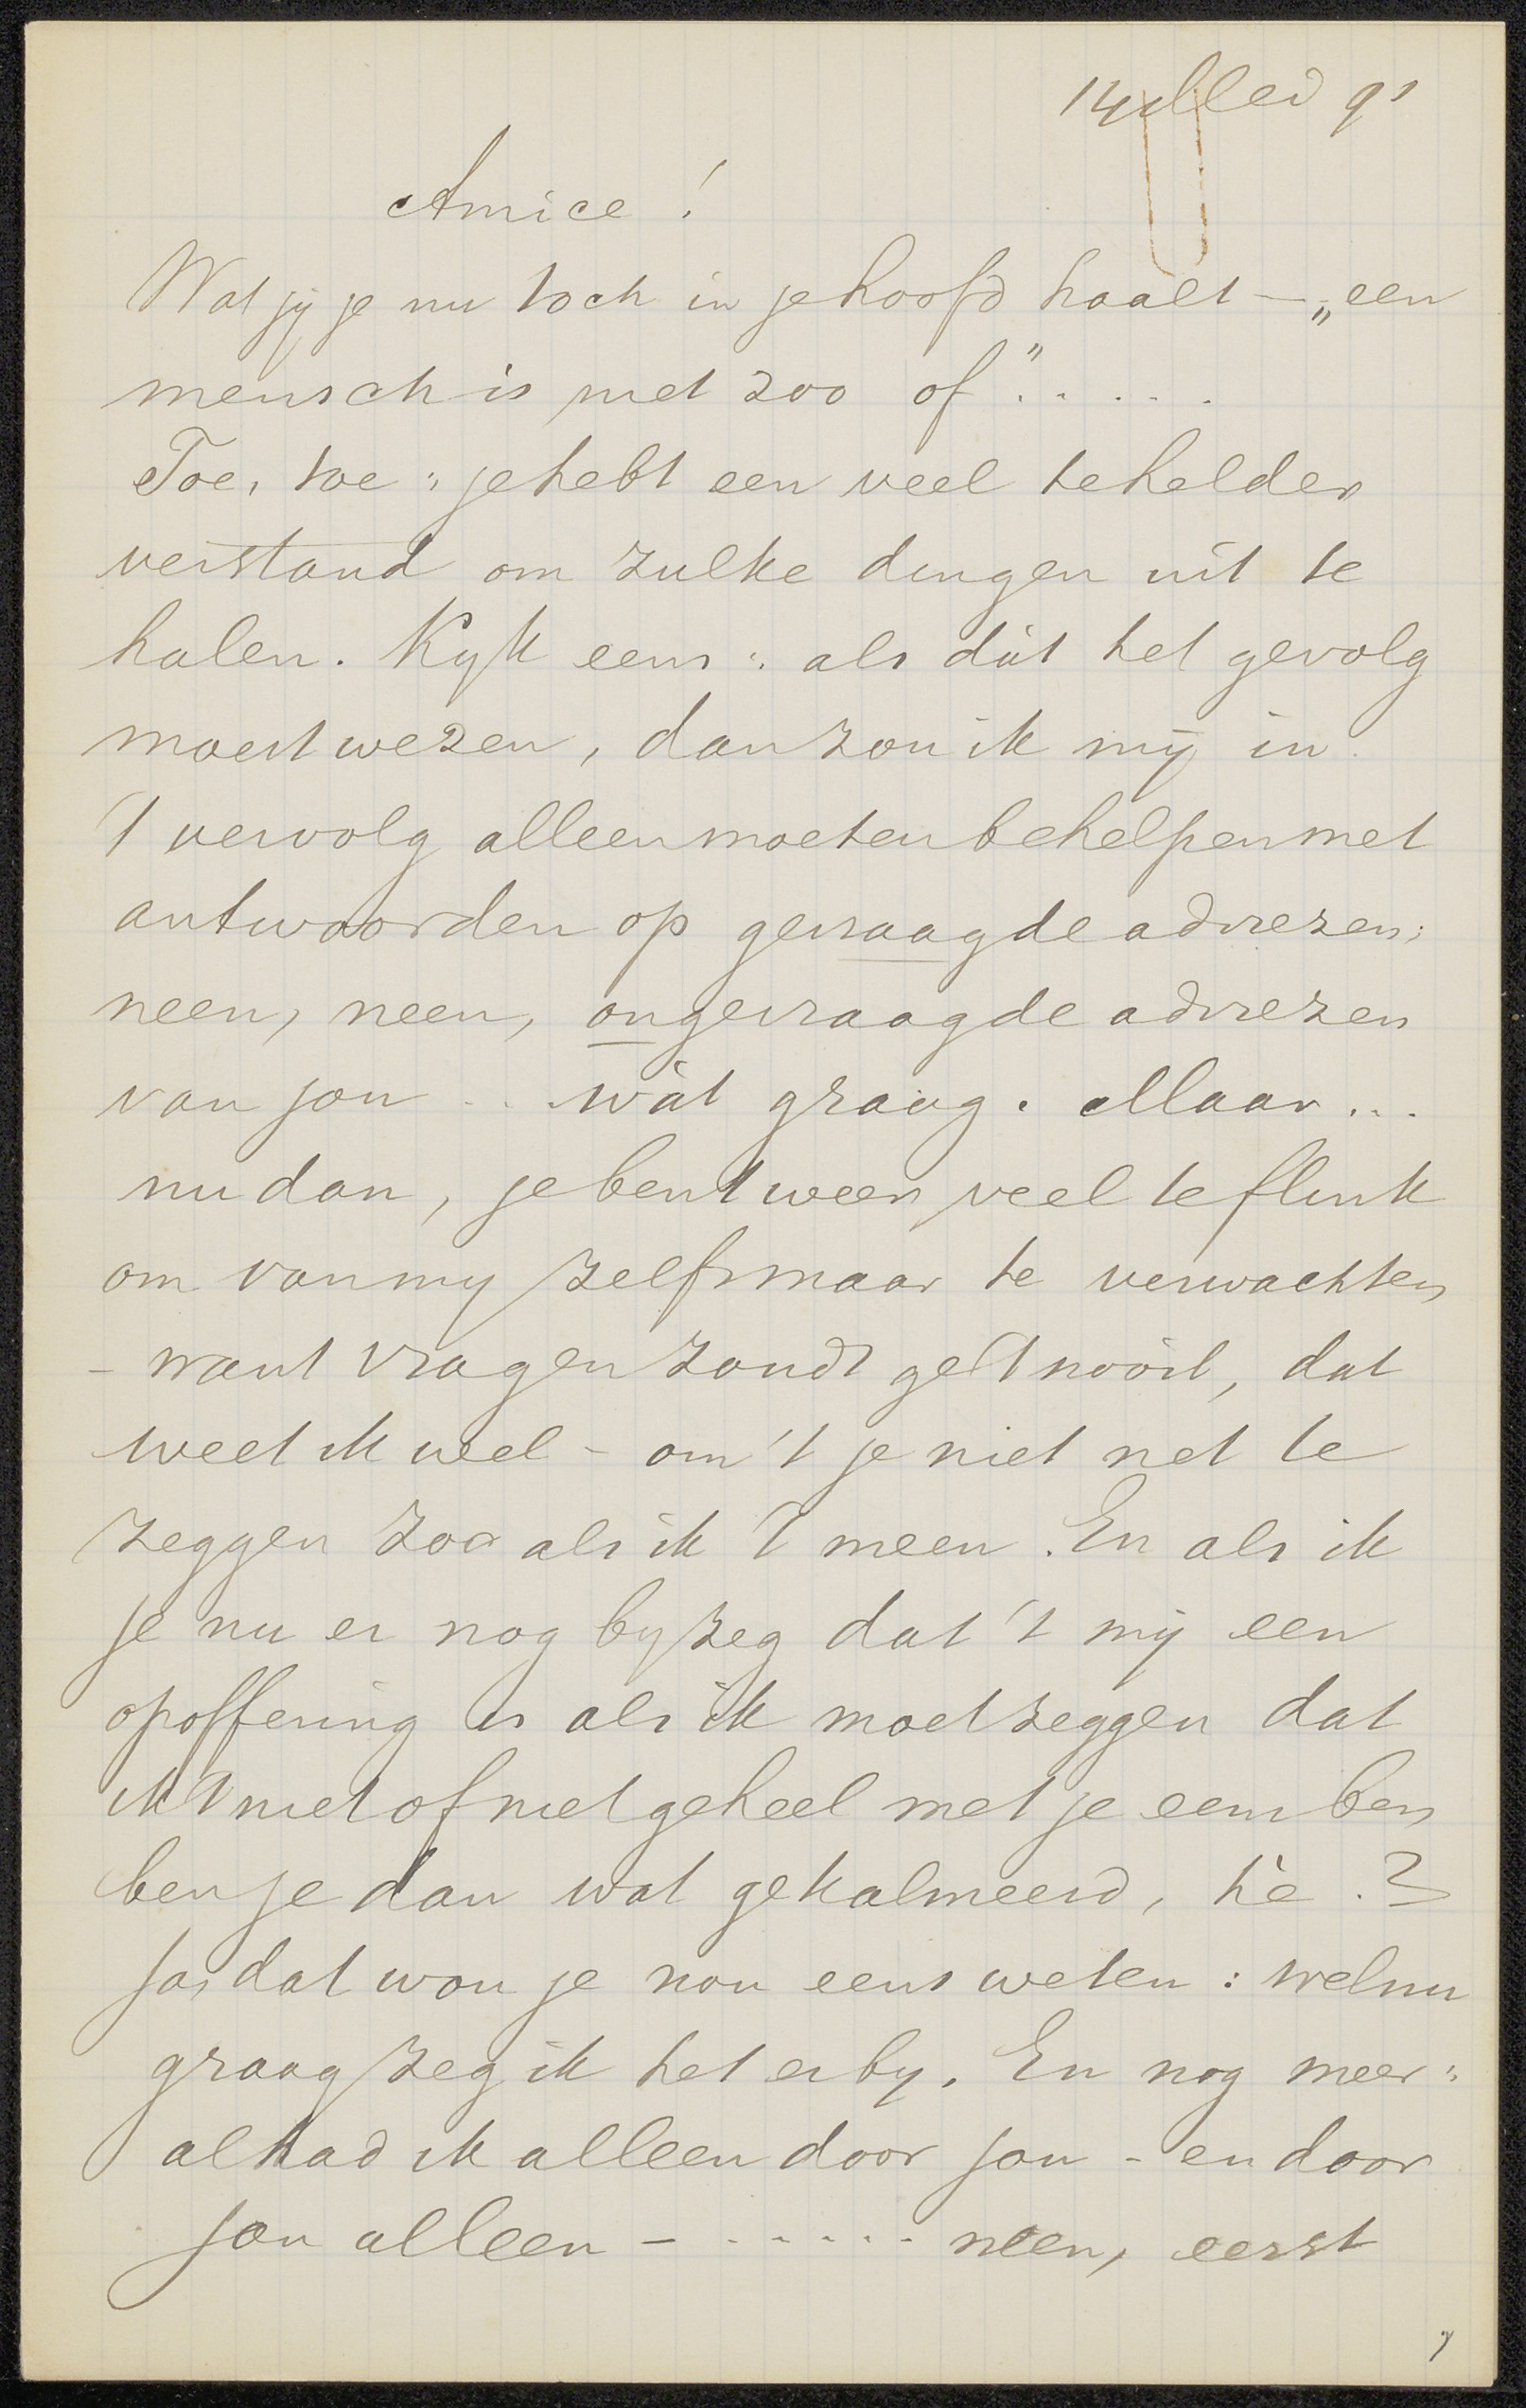 14 Mei 91
Amice!
Wat jij je nu toch in je hoofd haalt — „een
mensch is net zoo of" . . . . .
Toe, toe; je hebt een veel te helder
verstand om zulke dingen uit te
halen. Kyk eens: als dàt het gevolg
moest wezen, dan zou ik mij in
't vervolg alleen moeten behelpen met
antwoorden op gevraagde adviezen;
neen, neen, ongevraagde adviezen
van jou . . wàt graag. Maar ...
nu dan, je bent weer veel te flink
om van my zelfs maar te verwachten
- want vragen zoudt ge 't nóóit, dat
weet ik wel - om 't je niet net te
zeggen zoo als ik 't meen. En als ik
je nu er nog by zeg dat 't mij een
opoffering is als ik moet zeggen dat
ik 't niet of niet geheel met je eens ben
ben je dan wat gekalmeerd, hè.?
Ja, dat wou je nou eens weten: welnu
graag zeg ik het er by. En nog meer:
al had ik alleen door jou - en door
jou alleen - . . . . . . neen, eerst